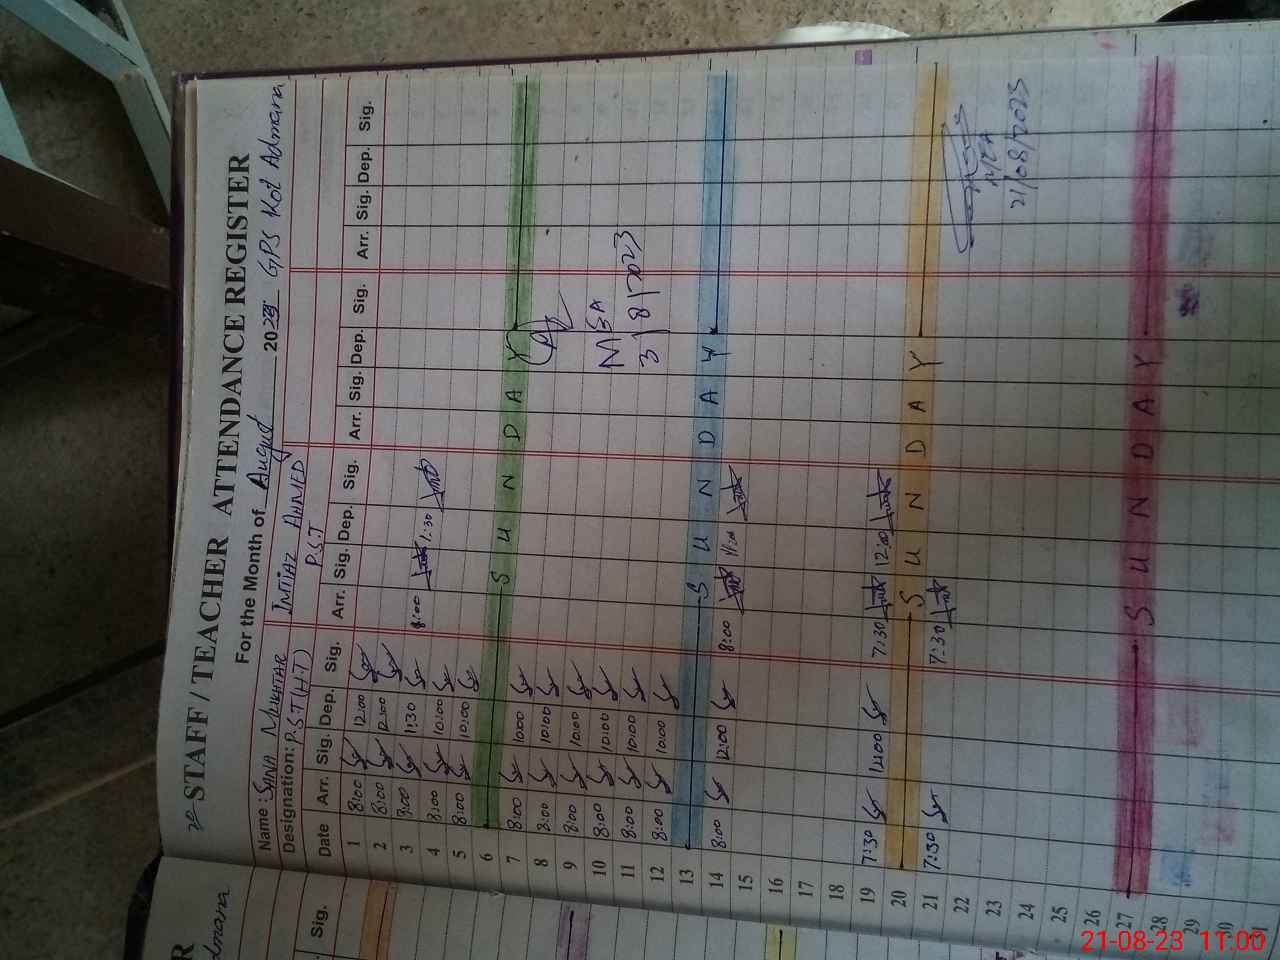 STAFF / TEACHER ATTENDANCE REGISTER
For the Month of August 2023 GPS Kot Admana
Name: SANA MUKHTAR IMTIAZ AHMED
Designation: P.S.T (H.T) P.S.T
Date Arr. Sig. Dep. Sig. Arr. Sig. Dep. Sig. Arr. Sig. Dep. Sig. Arr. Sig. Dep. Sig.
1 8:00 12:00
2 8:00 12:00
3 8:00 11:30 8:00 1:30
4 8:00 10:00
5 8:00 10:00
6 SUNDAY
7 8:00 10:00
8 8:00 10:00
9 8:00 10:00
10 8:00 10:00 MEA
11 8:00 10:00 3/8/2023
12 8:00 10:00
13 SUNDAY
14 8:00 12:00 8:00
15
16
17
18
19 7:30 12:00 7:30 12:00
20 SUNDAY
21 7:30 7:30
22
23 MEA
24 21/08/2023
25
26
27 SUNDAY
28
29
30
31
Sig.
21-08-23 11:00